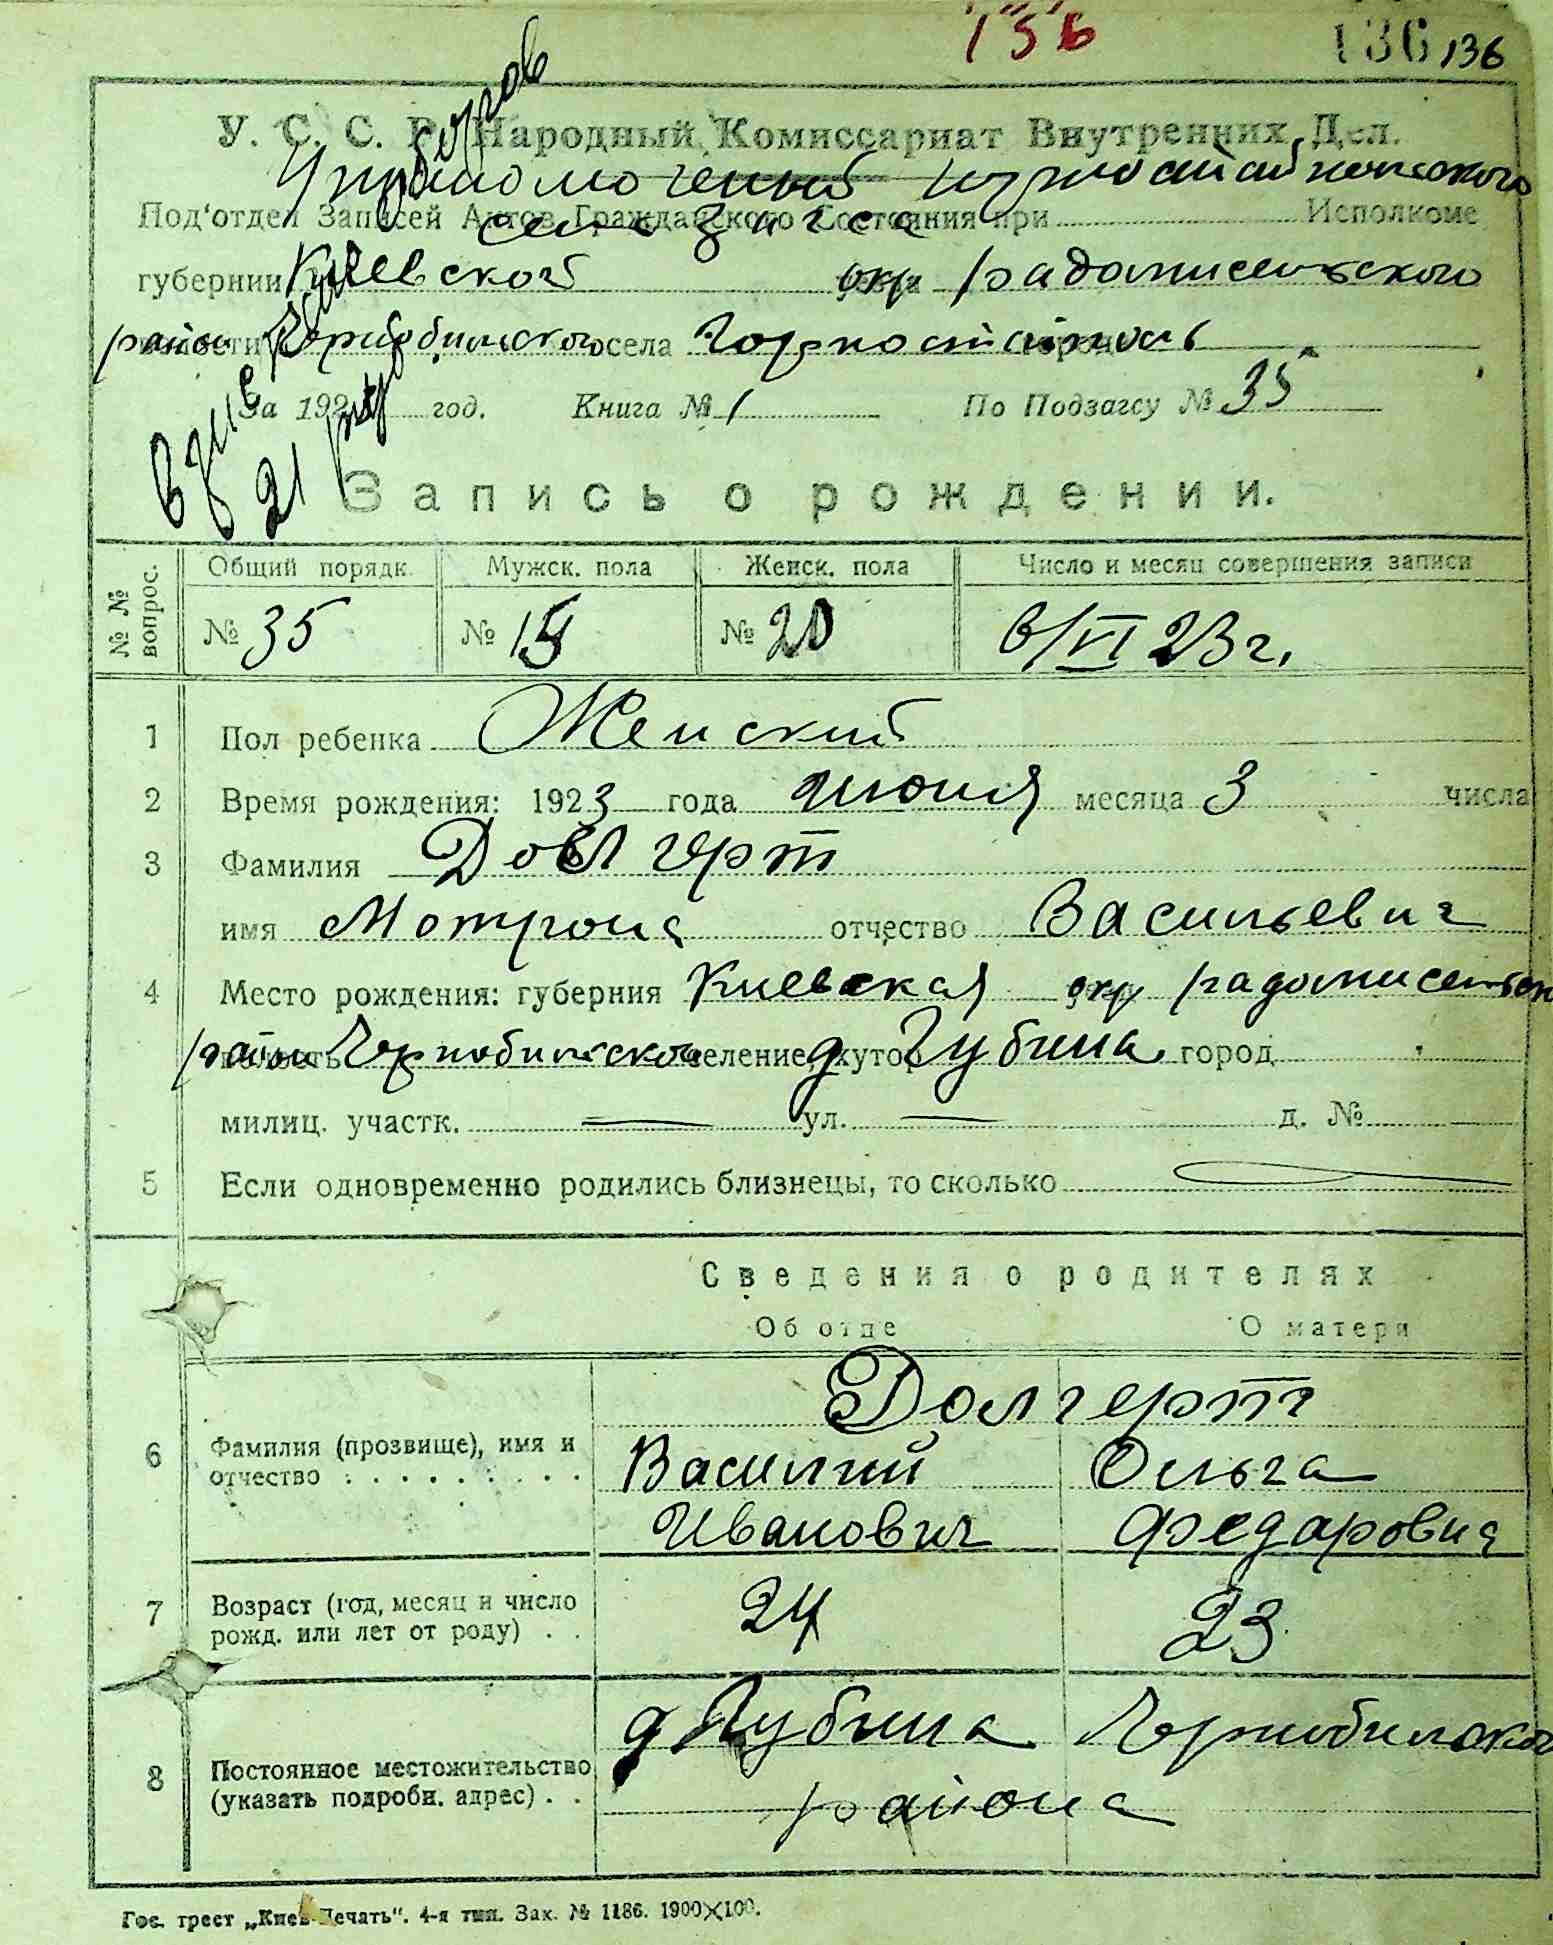 156 136 136
У. С. С. Р. Народный Комиссариат Внутренних Дел.
Уполномоченый
Под'отдел Записей Актов Гражданского Состояния при Исполкоме
села Загса
губернии Киевской окр радомисельского
район Чернобильского села Горностайполь
За 192 год. Книга № 1 По Подзагсу № 35
21 руб
Запись о рождении.
№ № вопрос. Общий порядк. Мужск. пола Женск. пола Число и месяц совершения записи
№ 35 № 15 № 20 6/VI 23 г.
1 Пол ребенка Женский
2 Время рождения: 1923 года июня месяца 3 числа
3 Фамилия Довгерт
имя Мотрона отчество Васильевич
4 Место рождения: губерния Киевская окр радомисельск
район Чернобильской селение, хутор д Губина город
милиц. участк. — ул. — д. №
5 Если одновременно родились близнецы, то сколько —
Сведения о родителях
Об отце О матери
Долгерт
6 Фамилия (прозвище), имя и отчество Василий Ольга
Иванович Федаровна
7 Возраст (год, месяц и число рожд. или лет от роду) 24 23
8 Постоянное местожительство (указать подробн. адрес) д Губина Чернобильского
района
Гос. трест „Киев-Печать“. 4-я тип. Зак. № 1186. 1900×100.